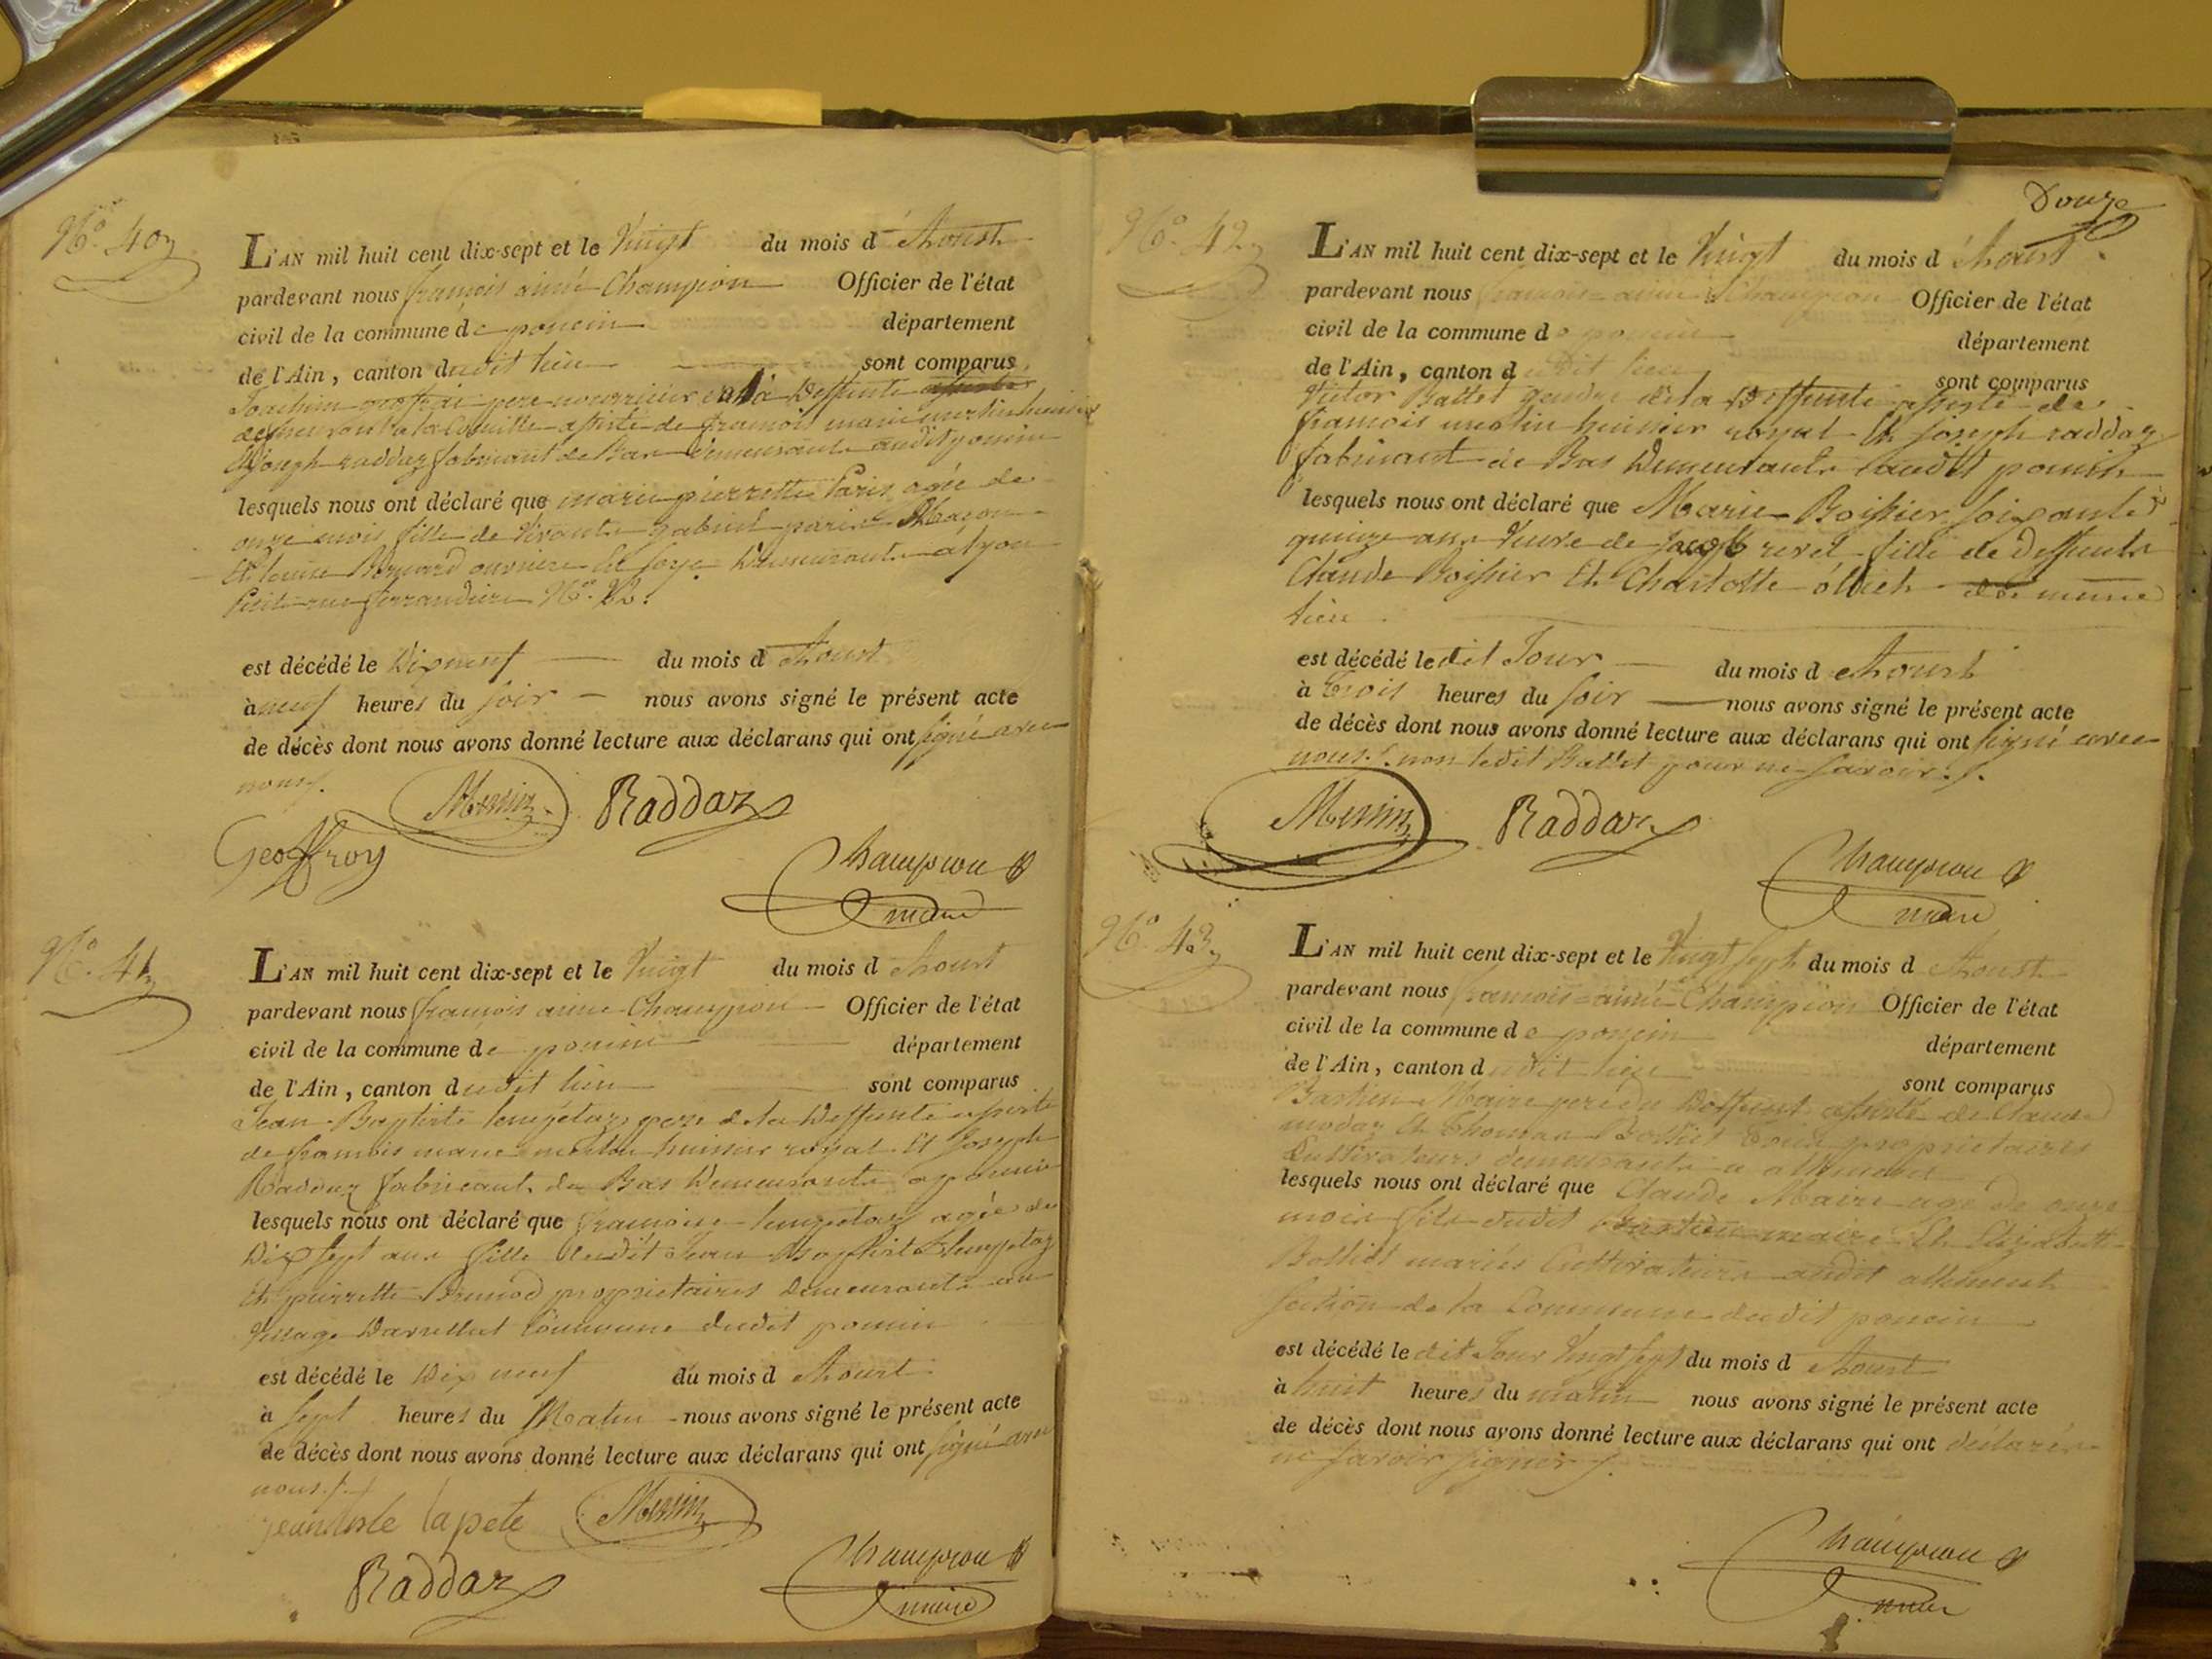 N.o 40
L'AN mil huit cent dix-sept et le Vingt du mois d'Aoust
pardevant nous françois aimé Champion Officier de l'état
civil de la commune de poncin département
de l'Ain, canton dudit lieu sont comparus
Joachim pere nourricier de la Deffunte
demeurant a la assisté de françois marie merlin huissier
Et Joseph raddaz fabricant de Bas Demeurants audit poncin
lesquels nous ont déclaré que marie pierrette Paris agée de
onze mois fille de Vivants gabriel paris Maçon
Et louise Bernard ouvriere de soye Demeurants a lyon
Petite rue ferrandiere N.o
est décédé le Dix neuf du mois d Aoust
à neuf heures du soir nous avons signé le présent acte
de décès dont nous avons donné lecture aux déclarans qui ont signé avec
nous.
Merlin Raddaz
Geoffroy
Champion
maire
N.o 41
L'AN mil huit cent dix-sept et le Vingt du mois d Aoust
pardevant nous françois aimé Champion Officier de l'état
civil de la commune de poncin département
de l'Ain, canton dudit lieu sont comparus
Jean Baptiste pere de la Deffunte assisté
de françois marie merlin huissier royal Et Joseph
Raddaz fabricant de Bas Demeurants a poncin
lesquels nous ont déclaré que françoise agée de
Dix sept ans fille dudit Jean Baptiste
Et pierrette Brunod proprietaires Demeurants au
Village Commune dudit poncin
est décédé le Dix neuf du mois d Aoust
à sept heures du Matin nous avons signé le présent acte
de décès dont nous avons donné lecture aux déclarans qui ont signé avec
nous.
Merlin
Raddaz
Champion
maire
Douze
N.o 42
L'AN mil huit cent dix-sept et le Vingt du mois d'Aoust
pardevant nous françois aimé Champion Officier de l'état
civil de la commune de poncin département
de l'Ain, canton dudit lieu sont comparus
Victor Ballet gendre de la Deffunte assisté de
françois merlin huissier royal Et Joseph raddaz
fabricant de Bas Demeurants audit poncin
lesquels nous ont déclaré que Marie Boissier soixante
quinze ans Veuve de Jacob revel fille de Deffunts
Claude Boissier Et Charlotte du meme
lieu
est décédé ledit Jour du mois d Aoust
à trois heures du soir nous avons signé le présent acte
de décès dont nous avons donné lecture aux déclarans qui ont signé avec
nous. non ledit Ballet pour ne savoir.
Merlin Raddaz
Champion
maire
N.o 43
L'AN mil huit cent dix-sept et le Vingt sept du mois d Aoust
pardevant nous françois aimé Champion Officier de l'état
civil de la commune de poncin département
de l'Ain, canton dudit lieu sont comparus
Bastien Maire pere du Deffunt assisté de Claude
modaz Et Thomas Bolliet tous proprietaires
Cultivateurs demeurants a allement
lesquels nous ont déclaré que Claude Maire agé de onze
mois fils dudit Bastien maire Et Elizabeth
Bolliet mariés Cultivateurs audit allement
section de la Commune dudit poncin
est décédé le dit Jour Vingt sept du mois d Aoust
à huit heures du matin nous avons signé le présent acte
de décès dont nous avons donné lecture aux déclarans qui ont declaré
ne savoir signer
Champion
maire